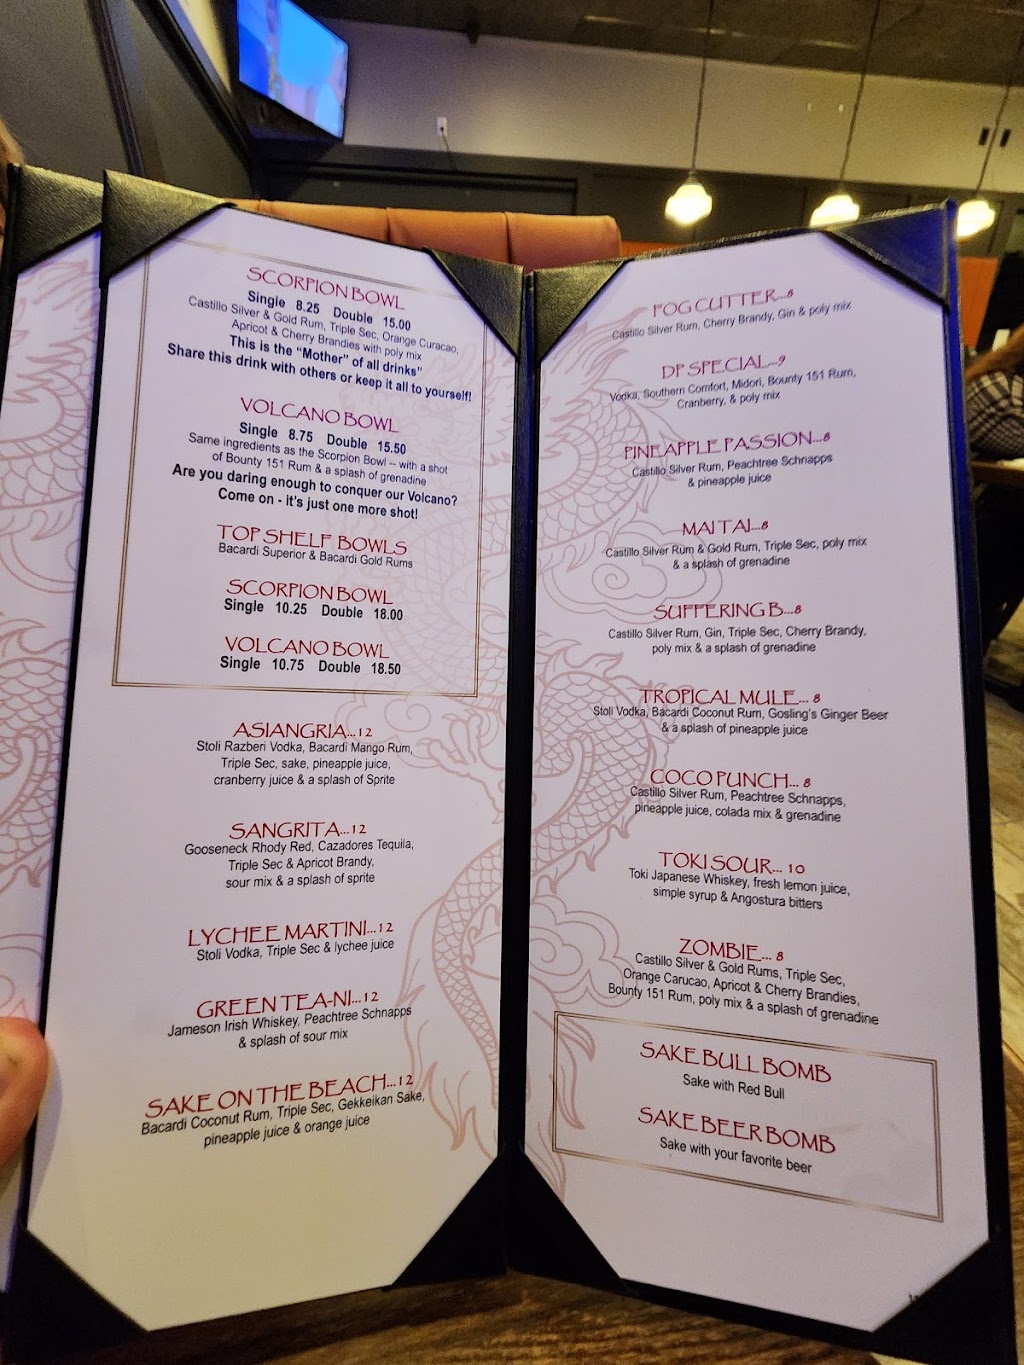 SCORPION BOWL
Single 8.25 Double 15.00
Castillo Silver & Gold Rum, Triple Sec, Orange Curacao,
Apricot & Cherry Brandies with poly mix
This is the “Mother” of all drinks”
Share this drink with others or keep it all to yourself!
VOLCANO BOWL
Single 8.75 Double 15.50
Same ingredients as the Scorpion Bowl -- with a shot
of Bounty 151 Rum & a splash of grenadine
Are you daring enough to conquer our Volcano?
Come on - it's just one more shot!
TOP SHELF BOWLS
Bacardi Superior & Bacardi Gold Rums
SCORPION BOWL
Single 10.25 Double 18.00
VOLCANO BOWL
Single 10.75 Double 18.50
ASIANGRIA...12
Stoli Razberi Vodka, Bacardi Mango Rum,
Triple Sec, sake, pineapple juice,
cranberry juice & a splash of Sprite
SANGRITA...12
Gooseneck Rhody Red, Cazadores Tequila,
Triple Sec & Apricot Brandy,
sour mix & a splash of sprite
LYCHEE MARTINI...12
Stoli Vodka, Triple Sec & lychee juice
GREEN TEA-NI...12
Jameson Irish Whiskey, Peachtree Schnapps
& splash of sour mix
SAKE ON THE BEACH...12
Bacardi Coconut Rum, Triple Sec, Gekkeikan Sake,
pineapple juice & orange juice
FOG CUTTER...8
Castillo Silver Rum, Cherry Brandy, Gin & poly mix
DP SPECIAL...9
Vodka, Southern Comfort, Midori, Bounty 151 Rum,
Cranberry, & poly mix
PINEAPPLE PASSION...8
Castillo Silver Rum, Peachtree Schnapps
& pineapple juice
MAI TAI...8
Castillo Silver Rum & Gold Rum, Triple Sec, poly mix
& a splash of grenadine
SUFFERING B...8
Castillo Silver Rum, Gin, Triple Sec, Cherry Brandy,
poly mix & a splash of grenadine
TROPICAL MULE... 8
Stoli Vodka, Bacardi Coconut Rum, Gosling's Ginger Beer
& a splash of pineapple juice
COCO PUNCH... 8
Castillo Silver Rum, Peachtree Schnapps,
pineapple juice, colada mix & grenadine
TOKI SOUR... 10
Toki Japanese Whiskey, fresh lemon juice,
simple syrup & Angostura bitters
ZOMBIE... 8
Castillo Silver & Gold Rums, Triple Sec,
Orange Carucao, Apricot & Cherry Brandies,
Bounty 151 Rum, poly mix & a splash of grenadine
SAKE BULL BOMB
Sake with Red Bull
SAKE BEER BOMB
Sake with your favorite beer